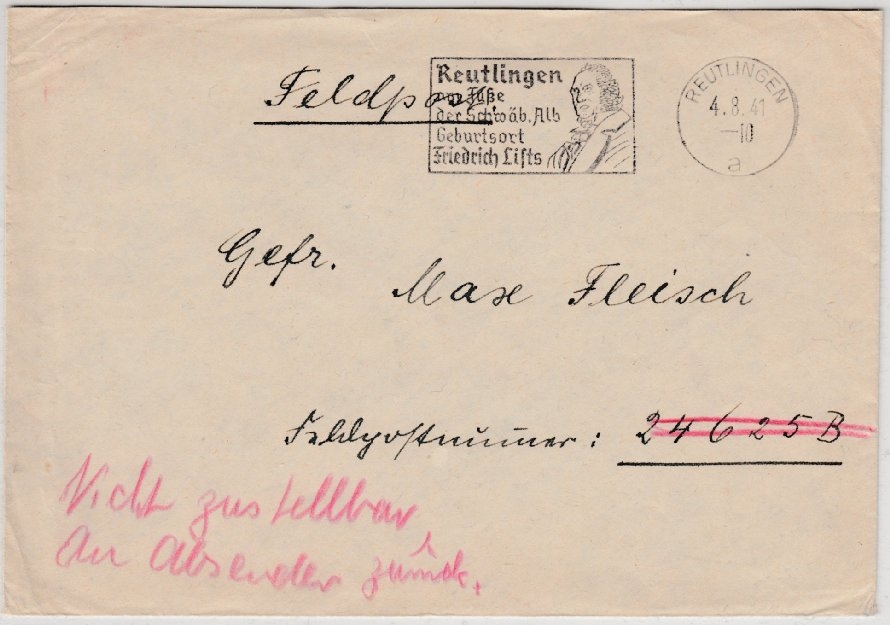 Feldpost.
Reutlingen
am Fuße
der Schwäb. Alb
Geburtsort
Friedrich Lists
REUTLINGEN
4.8.41
-10
a
Gefr.
Max Fleisch
Feldpostnummer: 24625B
Nicht zustellbar,
An Absender zurück.